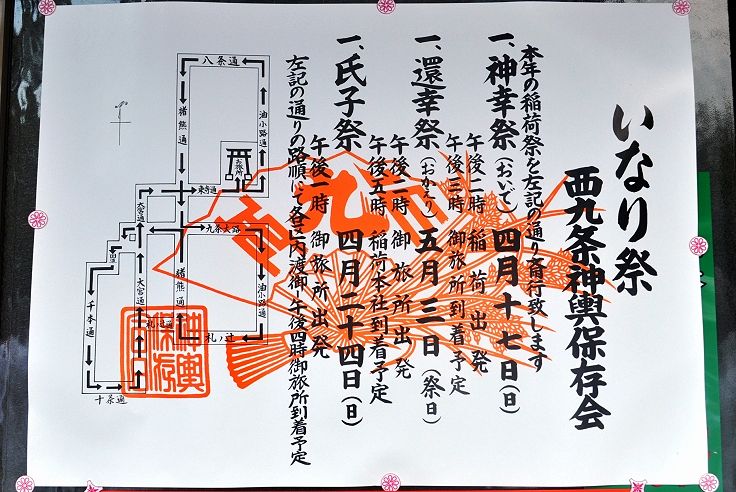 いなり祭
西九条神輿保存会
本年の稲荷祭を左記の通り斎行致します
一、神幸祭(おいで)四月十七日(日)
午後一時 稲荷出発
午後三時 御旅所到着予定
一、還幸祭(おかえり)五月三日(祭日)
午後二時 御旅所出発
午後五時 稲荷本社到着予定
一、氏子祭 四月二十四日(日)
午後一時 御旅所出発
左記の通りの路順にて各区内渡御 午後四時御旅所到着予定
西九条
八条通
猪熊通
油小路通
御旅所
東寺通
大宮通
九条大路
油小路通
猪熊通
大宮通
札ノ辻
札ノ辻通
千本通
十条通
神輿
保存